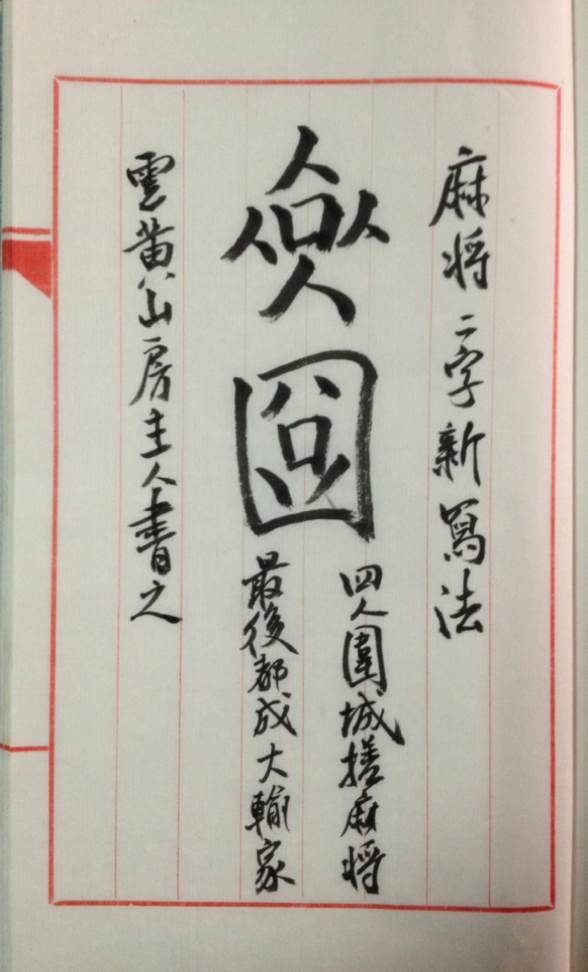 麻将二字新寫法
四人圍城搓麻将
最後都成大輸家
雲黄山房主人書之